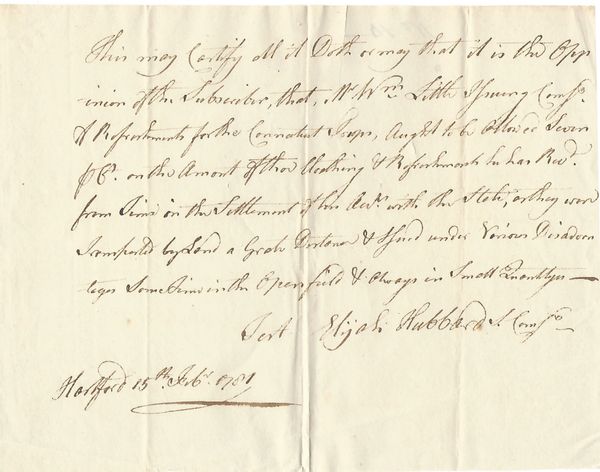 This may Certify all it Doth or may that it is the Opp
inion of the Subscriber, that, Mr. Wm. Little Issuing Comsy.
of Refreshments for the Connecticut Troops, Aught to be Allowed Seven
p Ct. on the Amont of the Cloathing & Refreshments he has Recd.
from Time in the Settlement of his Acts. with the State, as they were
Transported by Land a Grate Distance & Issued under Various Disadvan
tages Some Time in the Openfield & Always in Small Quantityes —
Test Elijah Hubbard S. Comsy.
Hartford 15th. Feby. 1781